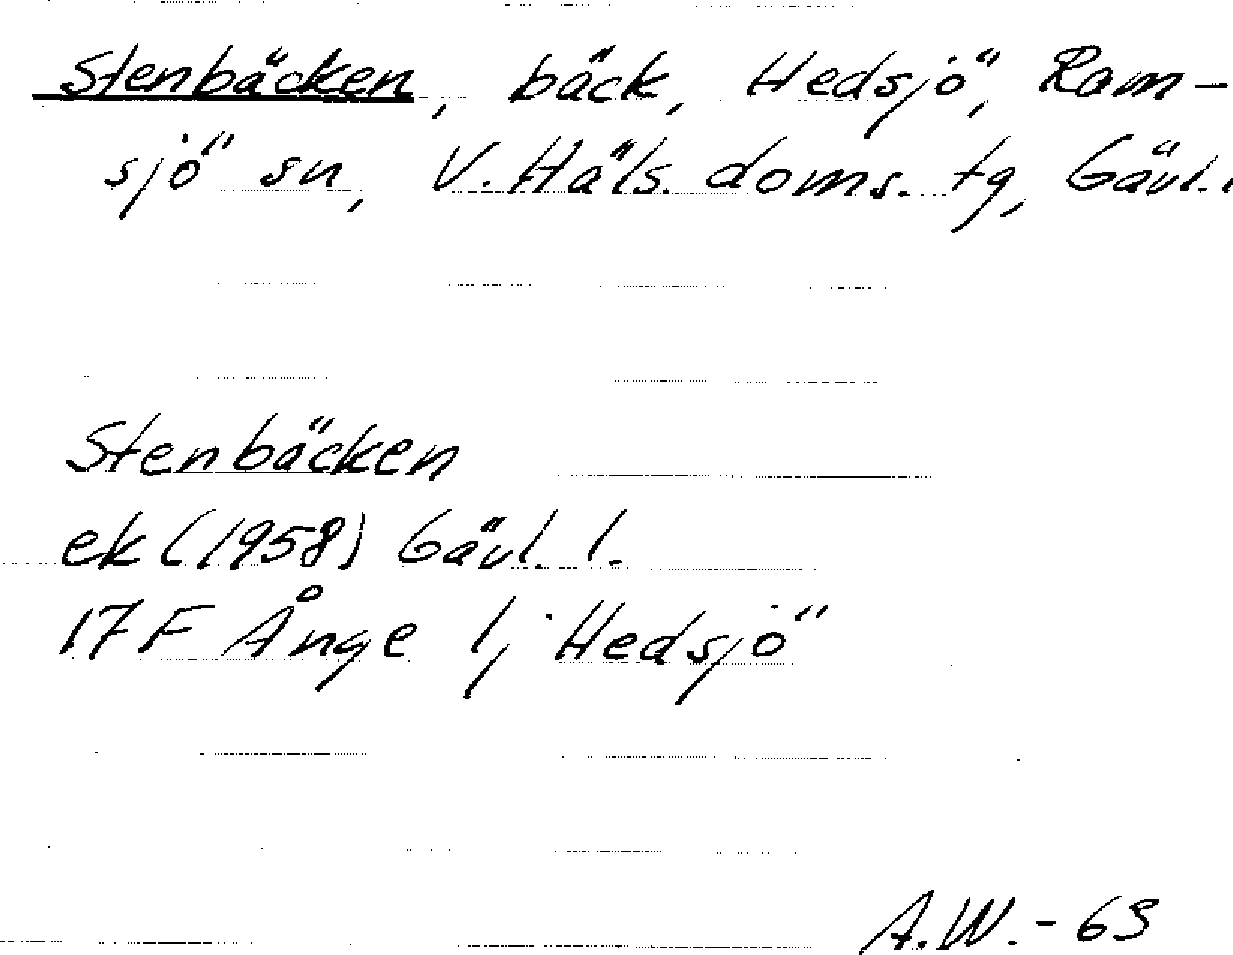 Stenbäcken, bäck, Hedsjö, Ram-
sjö sn, V. Häls. doms. tg, Gävl. l.
Stenbäcken
ek (1958) Gävl. l.
17F Ånge 1; Hedsjö
A.W. - 63